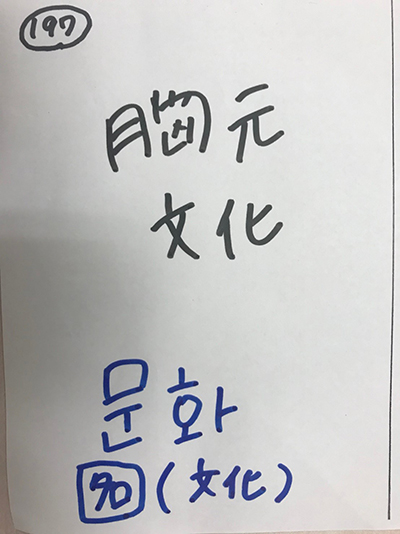 197
元
文化
문화
名 (文化)